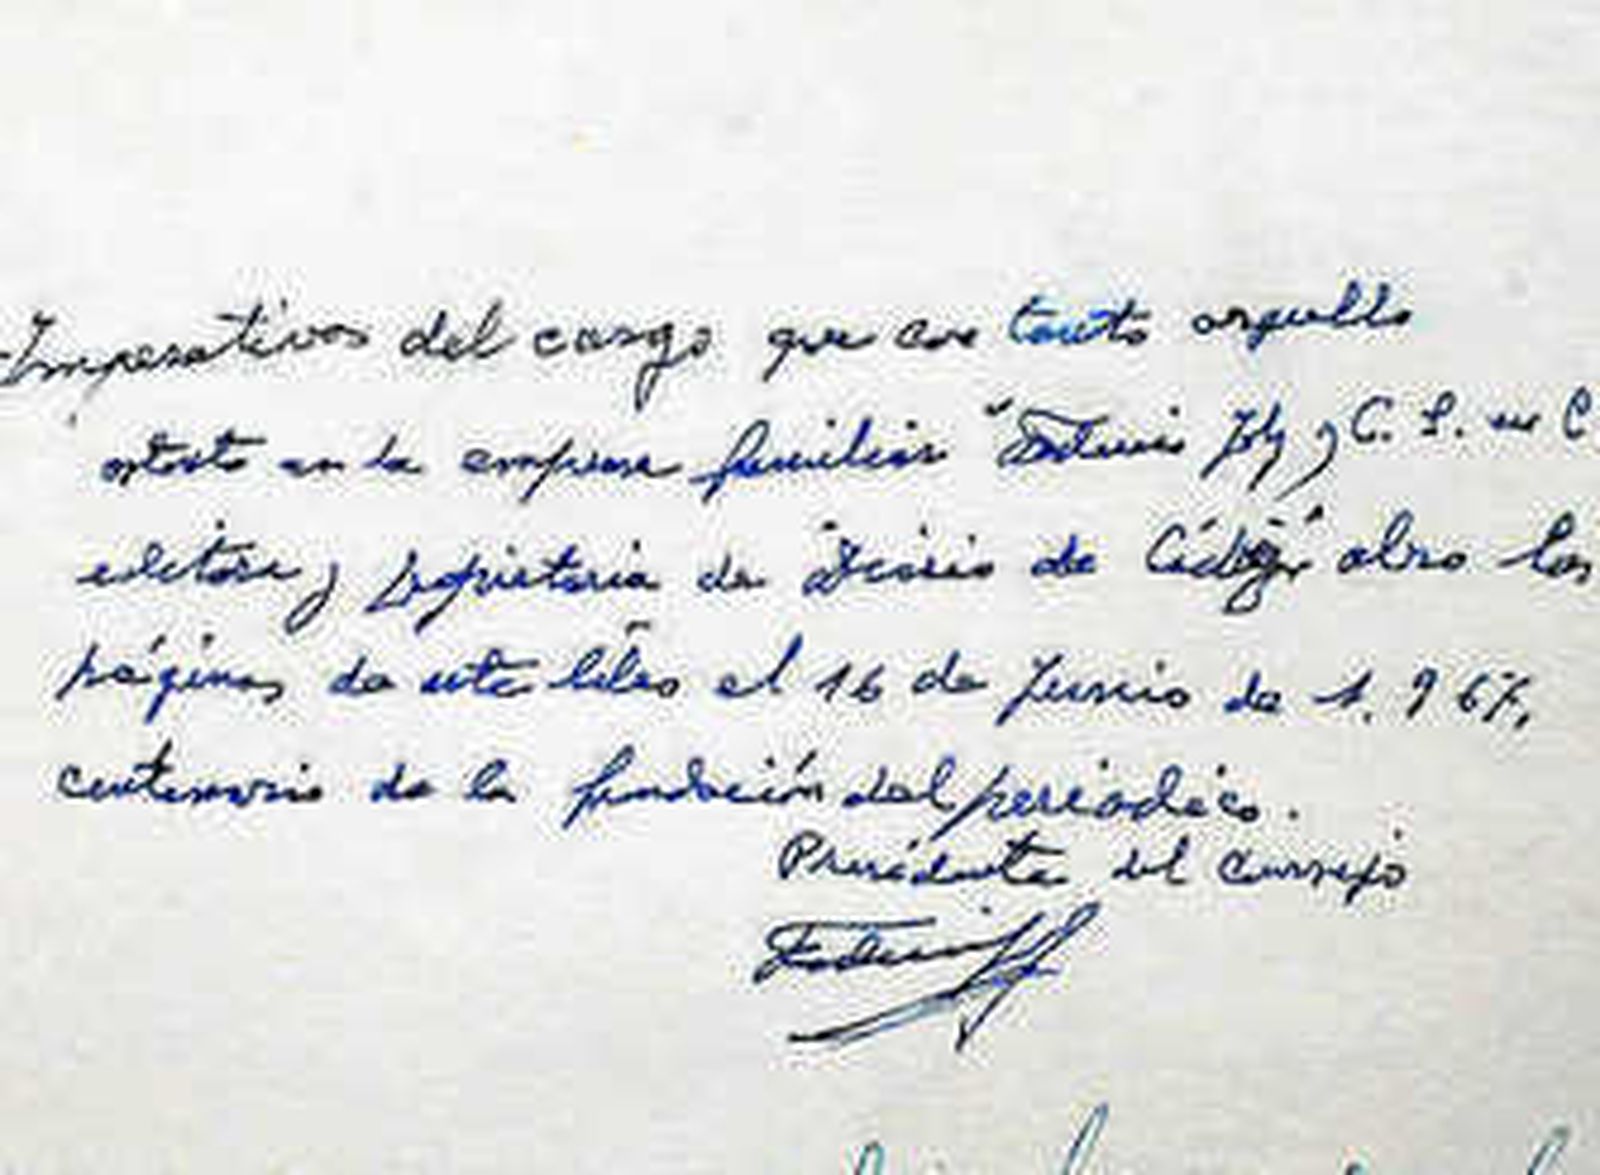 Imperativos del cargo que con tanto orgullo
ostento en la empresa familiar "Federico Joly y C. S. en C
editora y propietaria de Diario de Cádiz" abro las
páginas de este libro el 16 de Junio de 1.967,
centenario de la fundación del periódico.
Presidente del Consejo